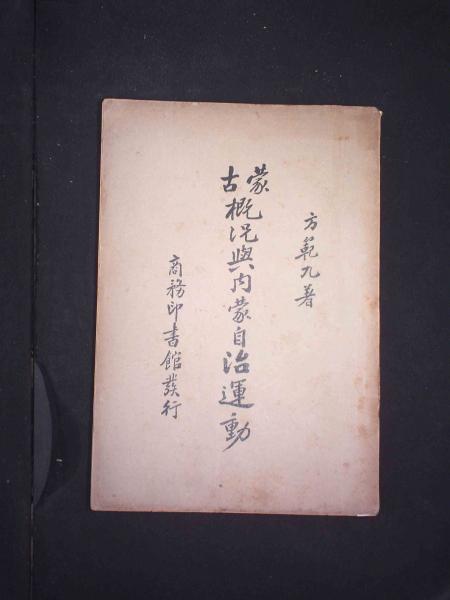 方範九著
蒙古概況與內蒙自治運動
商務印書館發行